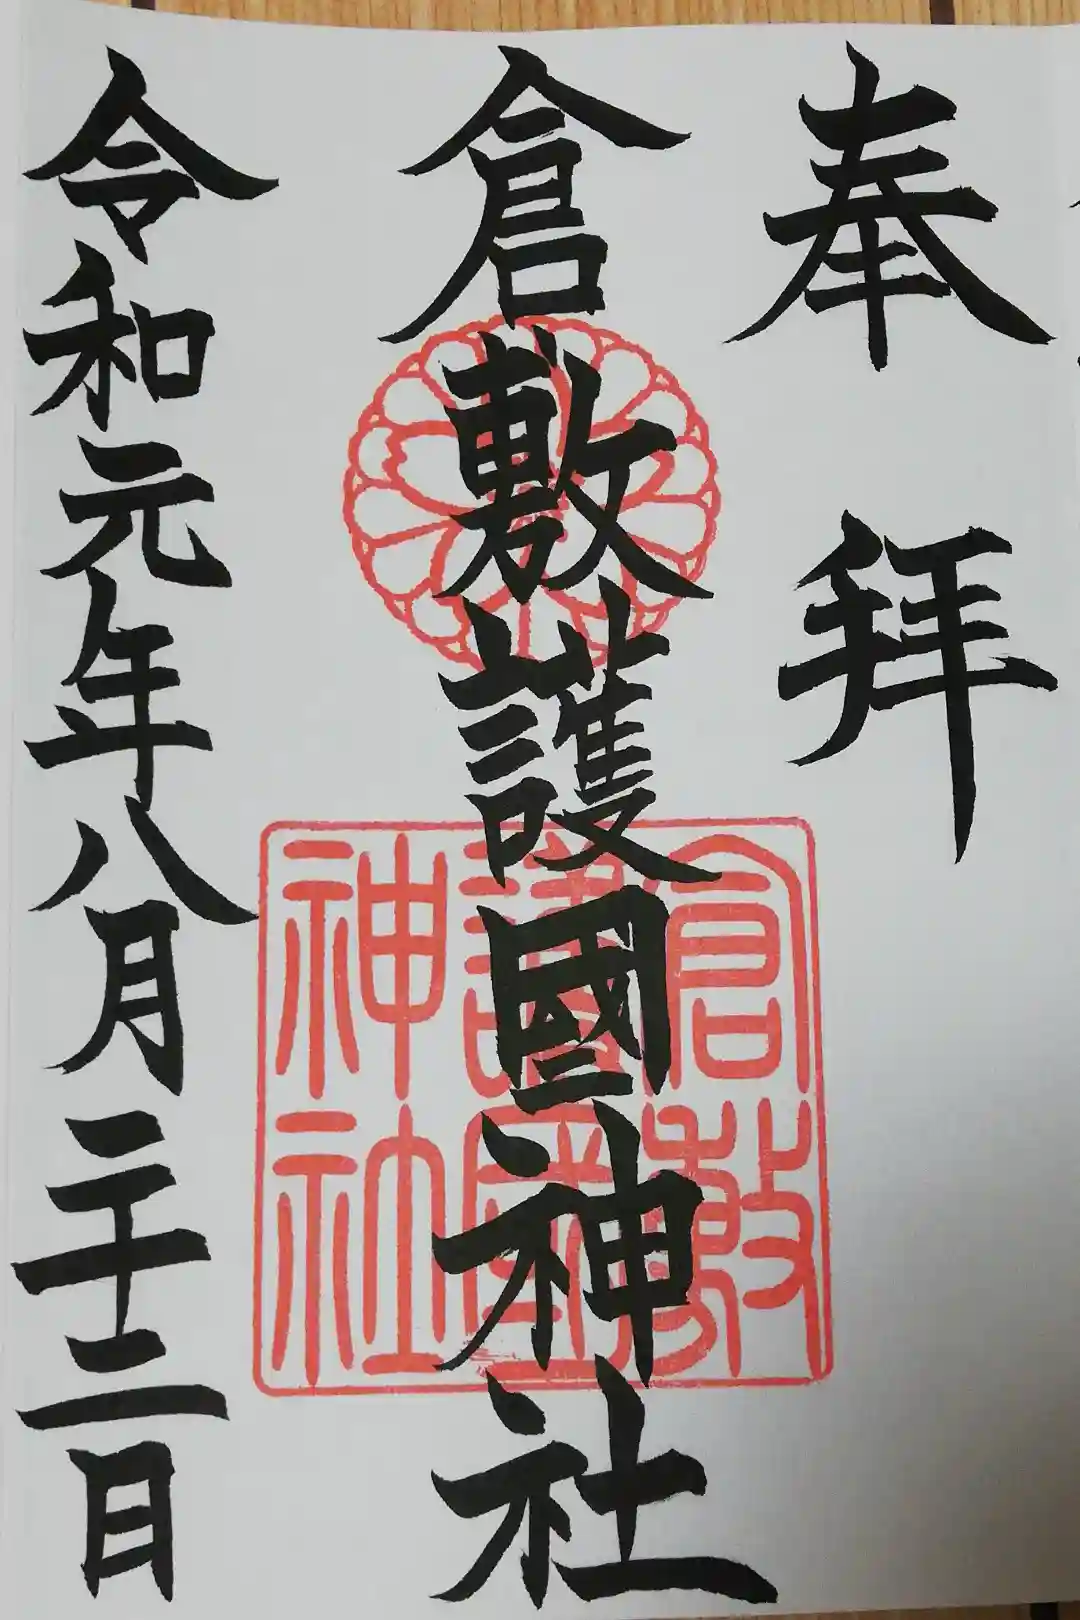 奉拝
倉敷護國神社
倉敷
護国
神社
令和元年八月二十二日